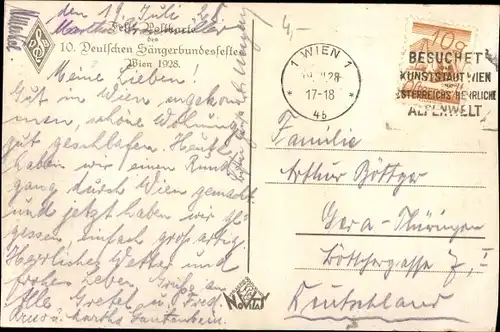 den 19. Juli 28
Fest-Postkarte
des
10. Deutschen Sängerbundesfestes
Wien 1928.
Meine Lieben!
Gut in Wien angekom
men, schöne Wohnung,
gut geschlafen. Heute
haben wir einen Rund
gang durch Wien gemacht
und jetzt haben wir ge
gessen, einfach großartig.
Herrliches Wetter und
frohes Leben. Grüße an
Alle Gretel u. Fred.
Gruß u.
4,-
1 WIEN 1
28
17-18
* 4b *
10g
BESUCHET
KUNSTSTADT WIEN
ÖSTERREICHS HERRLICHE
ALPENWELT
Familie
Arthur Böttger
Gera-Thüringen
Böttchergasse 7, I
Deutschland
NOVITAS